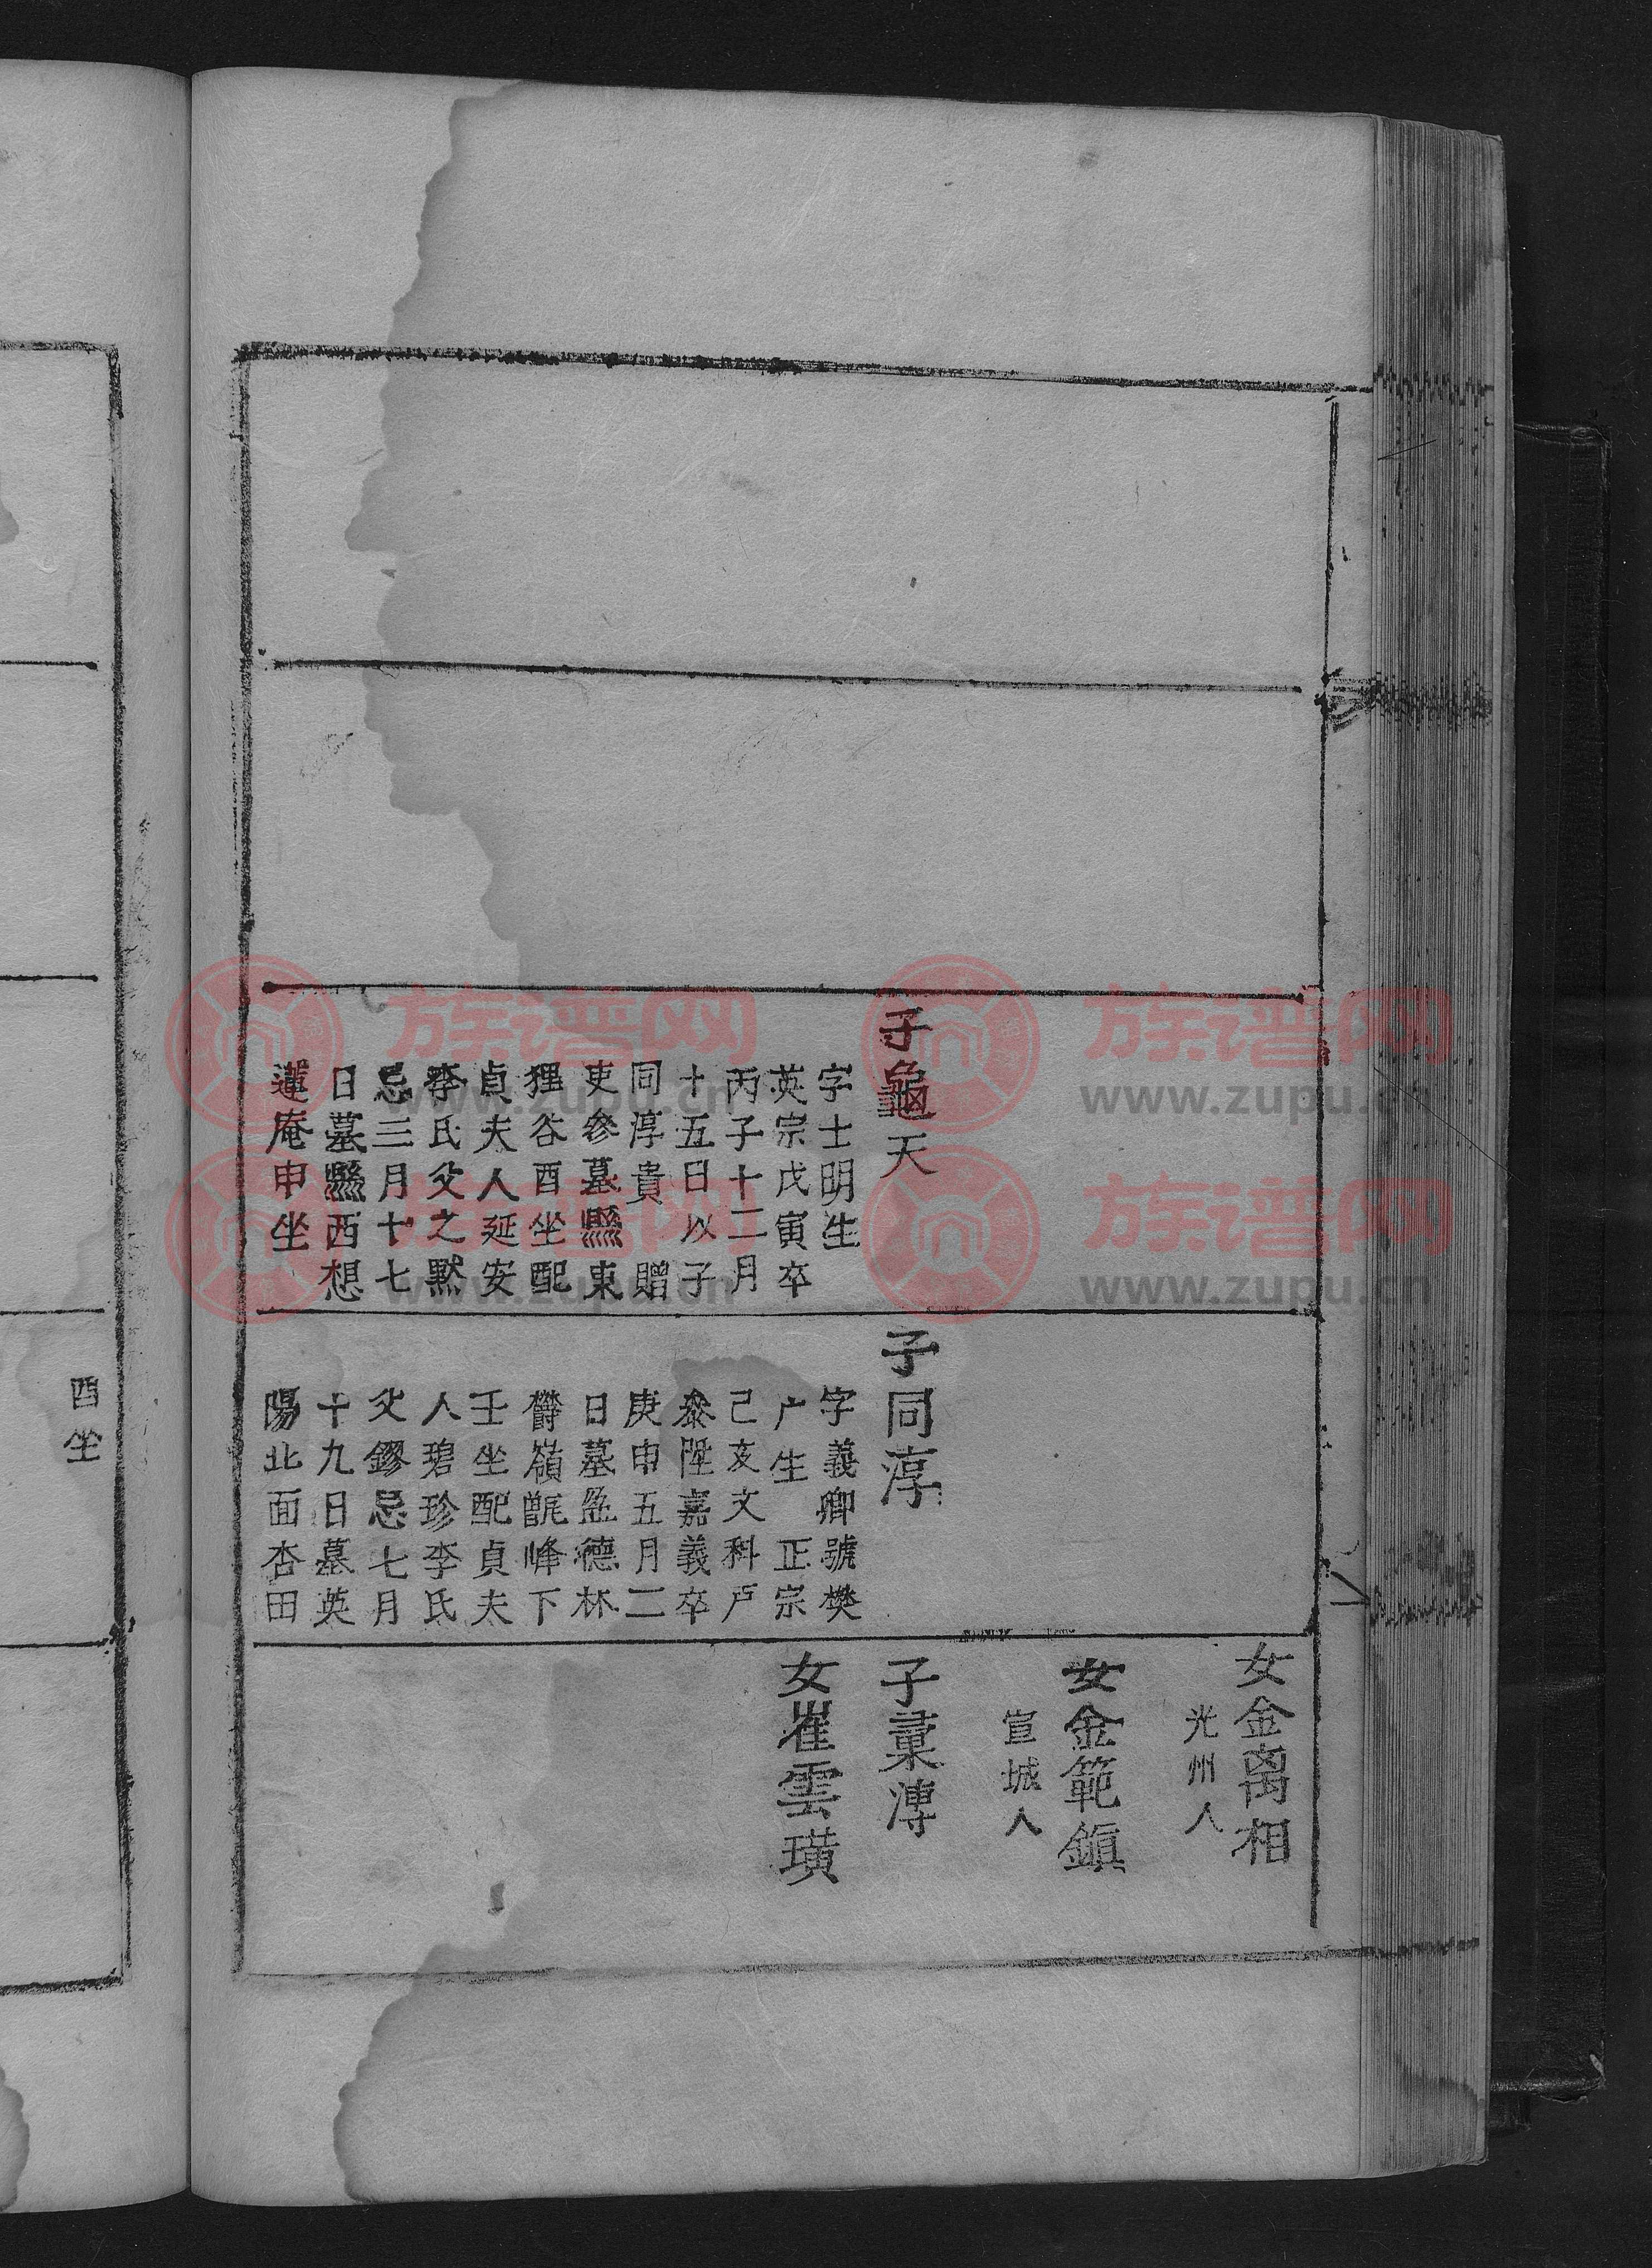 子龜天
字士明生
英宗戊寅卒
丙子十二月
十五日以子
同淳貴　贈
吏參墓縣東
狸谷酉坐配
貞夫人延安
李氏父之黙
忌三月十七
日墓縣西想
蓮庵申坐
子同淳
字義卿號樊
广生　正宗
己亥文科戸
叅陞嘉義卒
庚申五月二
日墓盈德林
欝嶺甑峰下
壬坐配貞夫
人碧珍李氏
父鏐忌七月
十九日墓英
陽北面杏田
女金禼相
光州人
女金範鎭
宣城人
子橐漙
女崔雲璜
酉坐
族谱网
www.zupu.cn
族谱网
www.zupu.cn
族谱网
www.zupu.cn
族谱网
www.zupu.cn